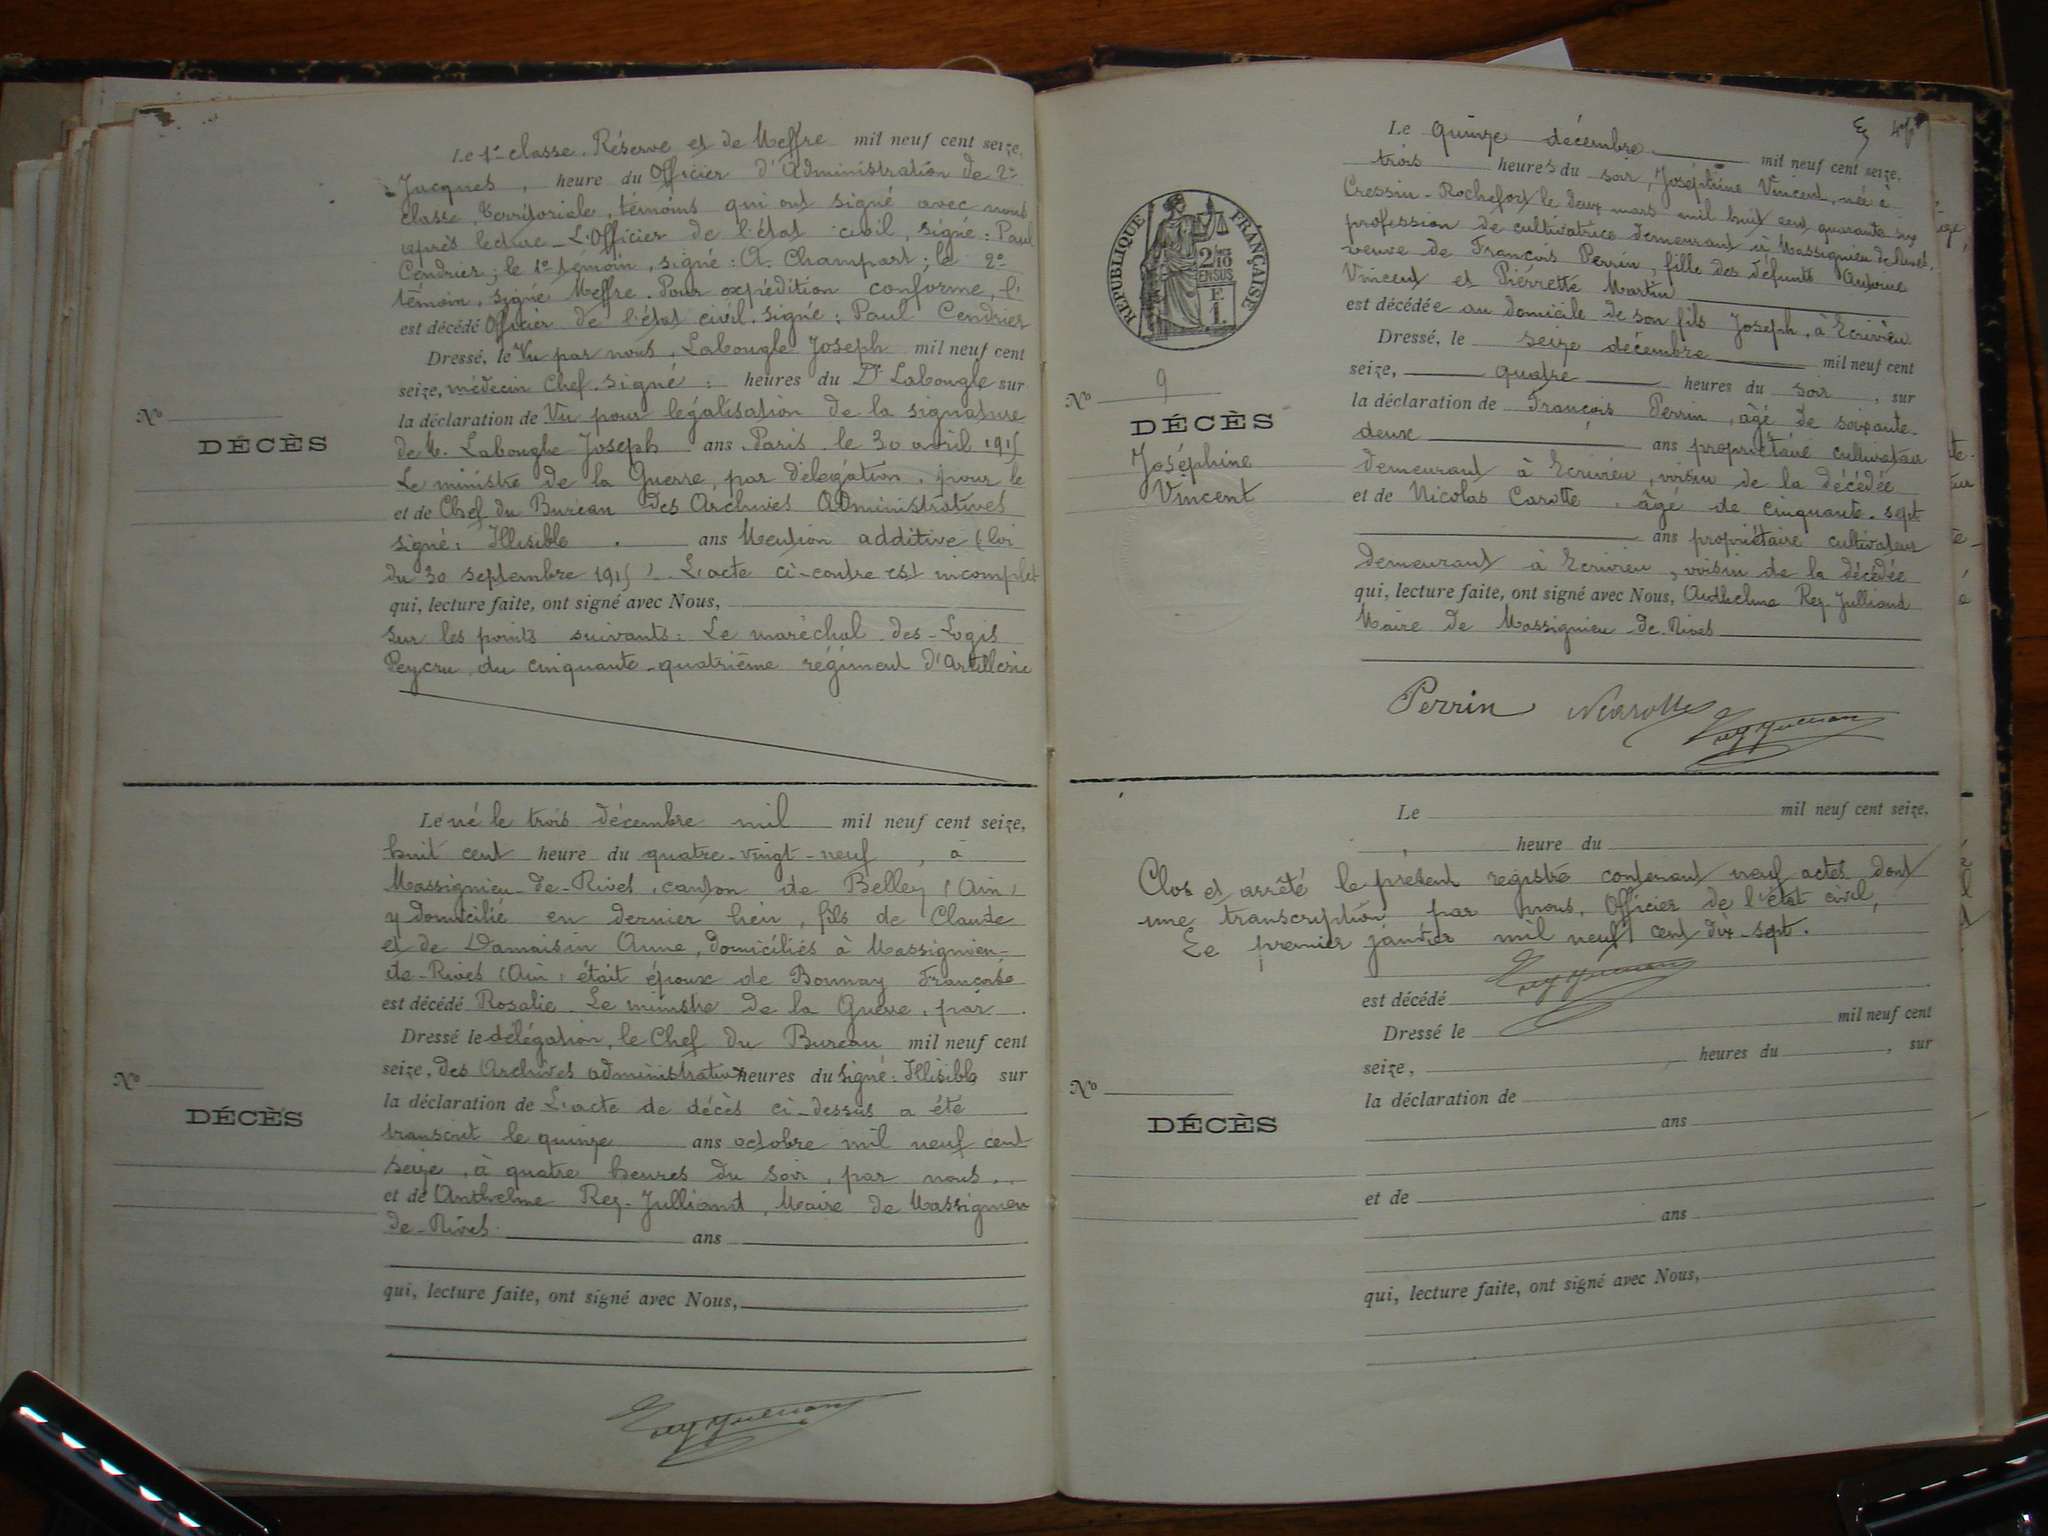 Le 1re classe. Réserve et de Meffre mil neuf cent seize,
Jacques, heure du Officier d'Administration de 2e
classe, territoriale, témoins qui ont signé avec nous
après lecture _ L'Officier de l'état civil, signé : Paul
Cendrier ; le 1er témoin, signé : A. Champart ; le 2e
témoin, signé Meffre. Pour expédition conforme, l'
est décédé Officier de l'état civil signé : Paul Cendrier
Dressé, le Vu par nous, Labougle Joseph mil neuf cent
seize, médecin Chef. signé : heures du Dr Labougle sur
No
DÉCÈS
la déclaration de Vu pour légalisation de la signature
de M. Labougle Joseph ans. Paris le 30 avril 1915
Le ministre de la Guerre, par délégation, pour le
et de Chef du Bureau des Archives Administratives
signé : Illisible . ans Mention additive (loi
du 30 septembre 1915) _ L'acte ci-contre est incomplet
qui, lecture faite, ont signé avec Nous,
sur les points suivants : Le maréchal des-Logis
Peycru du cinquante-quatrième régiment d'Artillerie
Le né le trois décembre mil mil neuf cent seize,
huit cent heure du quatre-vingt-neuf, à
Massignieu-de-Rives, canton de Belley (Ain)
y domicilié en dernier lieu, fils de Claude
et de Damaisin Anne, domiciliés à Massignieu-
de-Rives (Ain) était époux de Bonnay Françoise
est décédé Rosalie. Le ministre de la Guerre, par
Dressé le délégation, le Chef du Bureau mil neuf cent
seize, des Archives administratives heures du signé : Illisible sur
No
DÉCÈS
la déclaration de L'acte de décès ci-dessus a été
transcrit le quinze ans octobre mil neuf cent
seize, à quatre heures du soir, par nous,
et de Anthelme Rey-Julliand, Maire de Massignieu
de-Rives. ans
qui, lecture faite, ont signé avec Nous,
Rey Julliand
Le quinze décembre mil neuf cent seize,
trois heures du soir, Joséphine Vincent, née à
Cressin-Rochefort le deux mars mil huit cent quarante six
profession de cultivatrice demeurant à Massignieu de Rives,
veuve de François Perrin, fille des défunts Antoine
Vincent et Pierrette Martin
est décédée au domicile de son fils Joseph, à Ecrivieu
RÉPUBLIQUE FRANÇAISE
2/10
EN SUS
F.
1.
Dressé, le seize décembre mil neuf cent
seize, quatre heures du soir, sur
No 9
DÉCÈS
Joséphine
Vincent
la déclaration de François Perrin, âgé de soixante-
deux ans propriétaire cultivateur
demeurant à Ecrivieu, voisin de la décédée
et de Nicolas Carotte, âgé de cinquante-sept
ans propriétaire cultivateur
demeurant à Ecrivieu, voisin de la décédée
qui, lecture faite, ont signé avec Nous, Anthelme Rey-Julliand
Maire de Massignieu-de-Rives
Perrin NCarotte Rey Julliand
Le mil neuf cent seize,
heure du
Clos et arrêté le présent registre contenant neuf actes dont
une transcription par nous, Officier de l'état civil,
Le premier janvier mil neuf cent dix-sept.
Rey Julliand
est décédé
Dressé le mil neuf cent
seize, heures du , sur
No
DÉCÈS
la déclaration de
ans
et de
ans
qui, lecture faite, ont signé avec Nous,